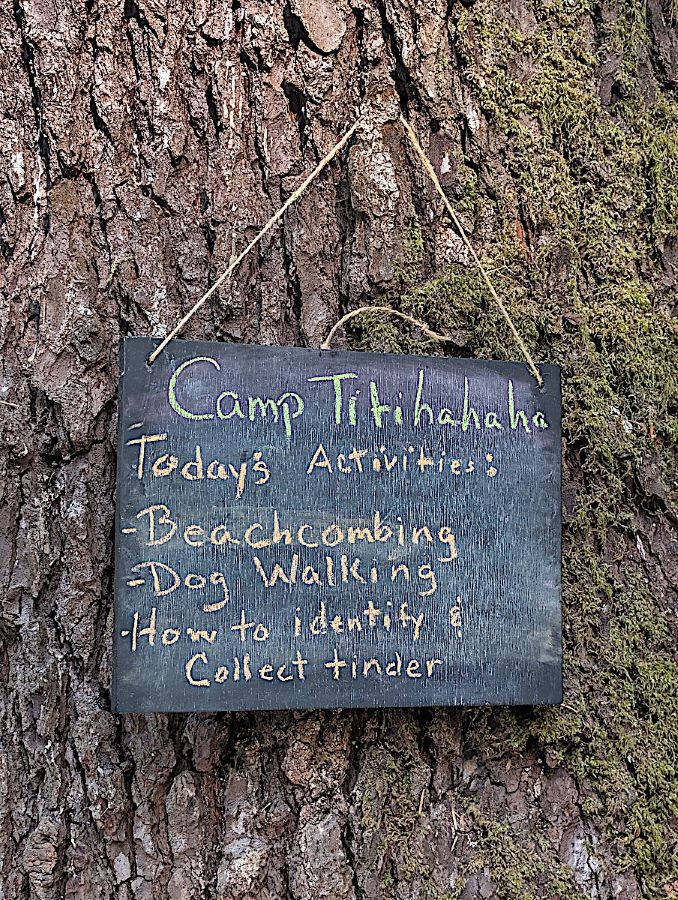 Camp Titihahaha
Today's Activities:
-Beachcombing
-Dog Walking
-How to identify &
Collect tinder